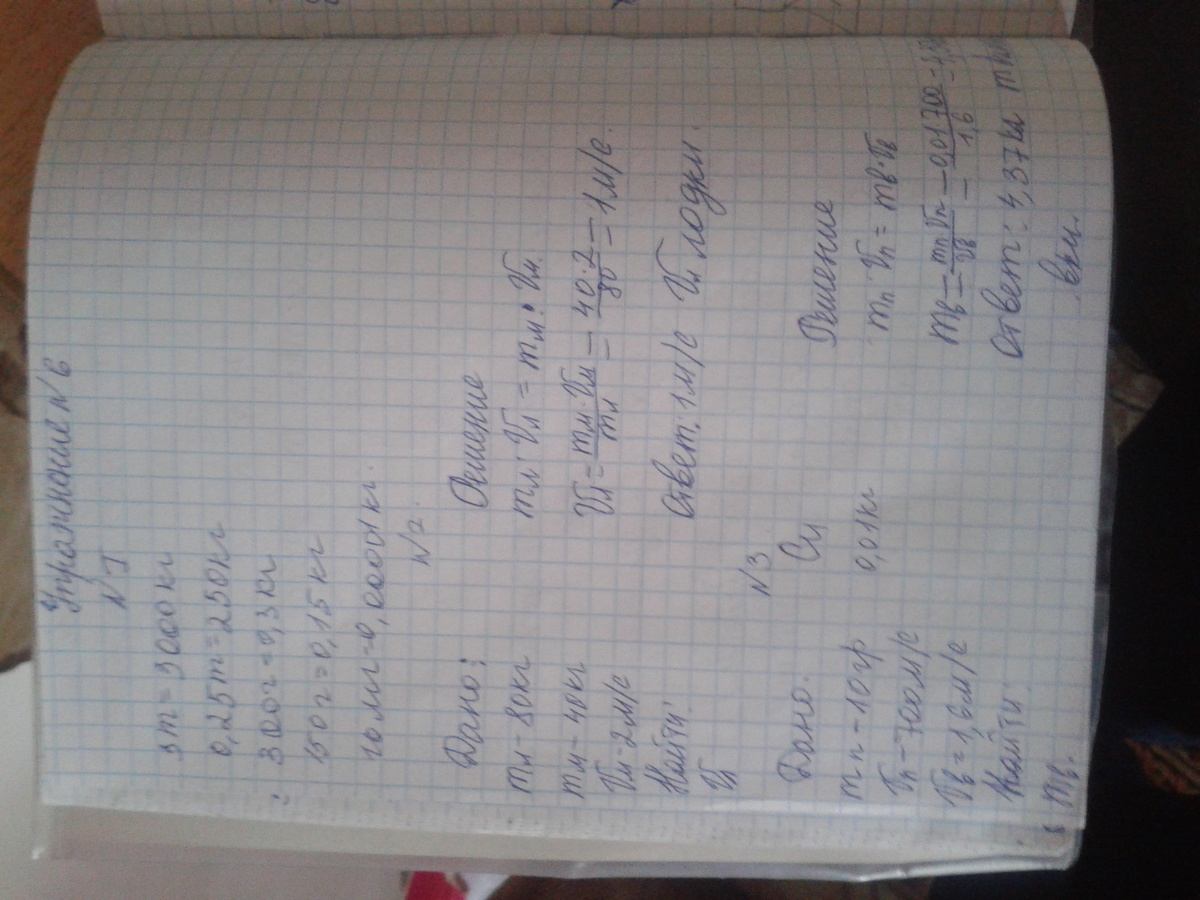 Упражнение N6
N I
3т = 3000кг
0,25т = 250кг
300г = 0,3 кг
150г = 0,15 кг
10мг = 0,00001 кг.
N2.
Дано:
mл - 80кг
mм - 40кг
Vм - 2м/с
Найти:
Vл
Решение
mл · Vл = mм · Vм.
Vл = mм · Vм / mл = 40 · 2 / 80 = 1м/с.
Ответ: 1м/с Vл лодки.
N3
Дано. Си
mп - 10гр 0,01кг
Vп - 700м/с
Vв = 1,6м/с
Найти:
mв.
Решение
mп · Vп = mв · Vв
mв = mп Vп / Vв = 0,01 700 / 1,6
Ответ: 4,37кг